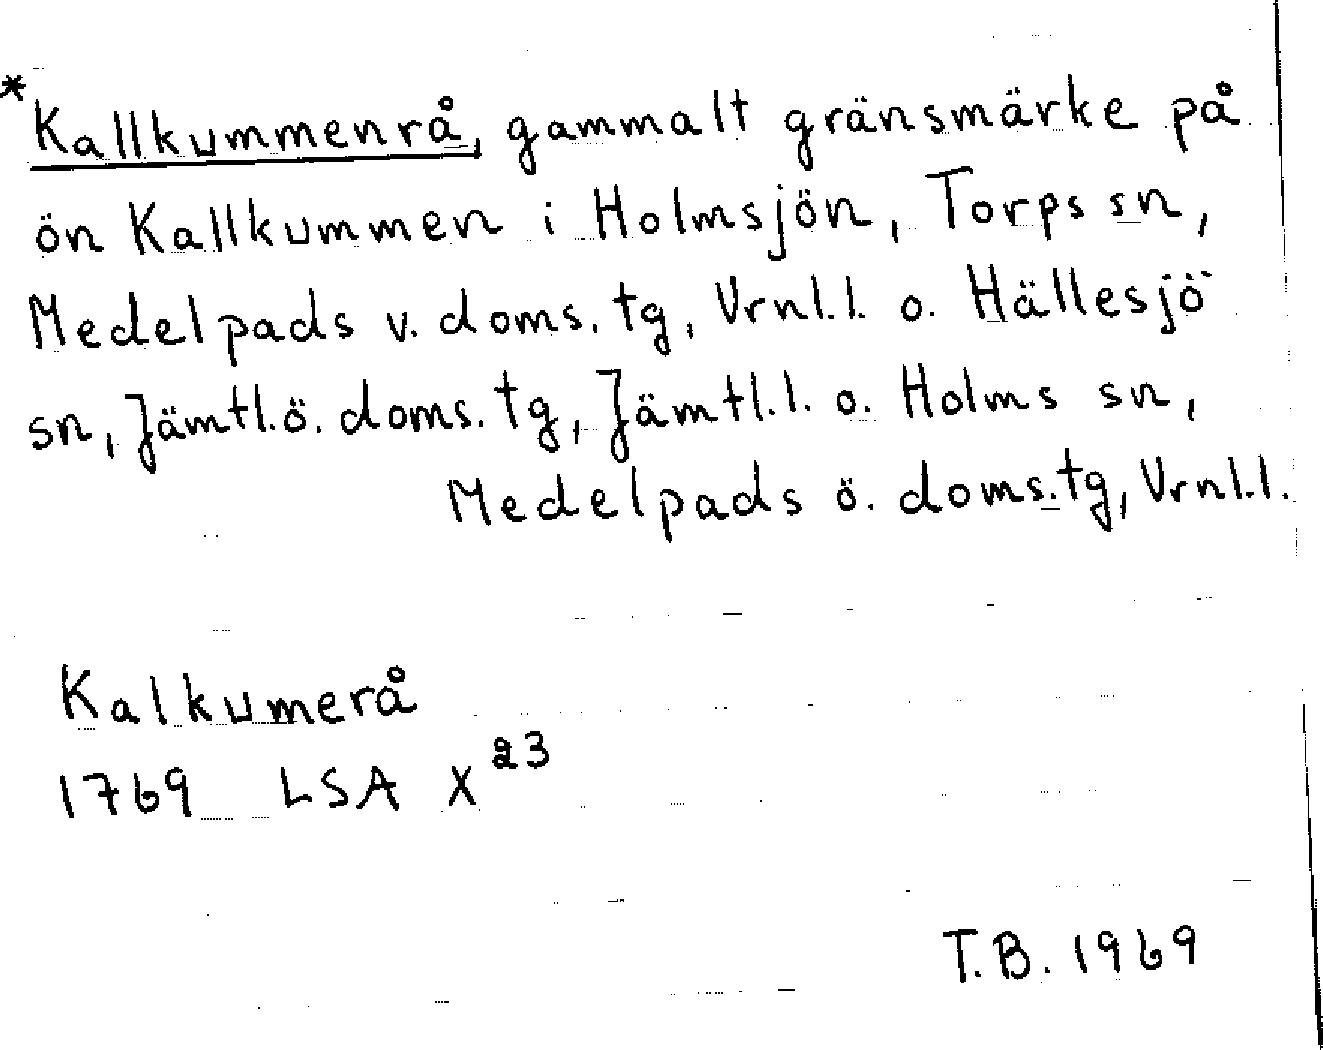 *Kallkummenrå, gammalt gränsmärke på
ön Kallkummen i Holmsjön, Torps sn,
Medelpads v. doms. tg, Vrnl.l. o. Hällesjö
sn, Jämtl.ö. doms. tg, Jämtl.l. o. Holms sn,
Medelpads ö. doms. tg, Vrnl.l.
Kalkumerå
1769 LSA X²³
T.B. 1969